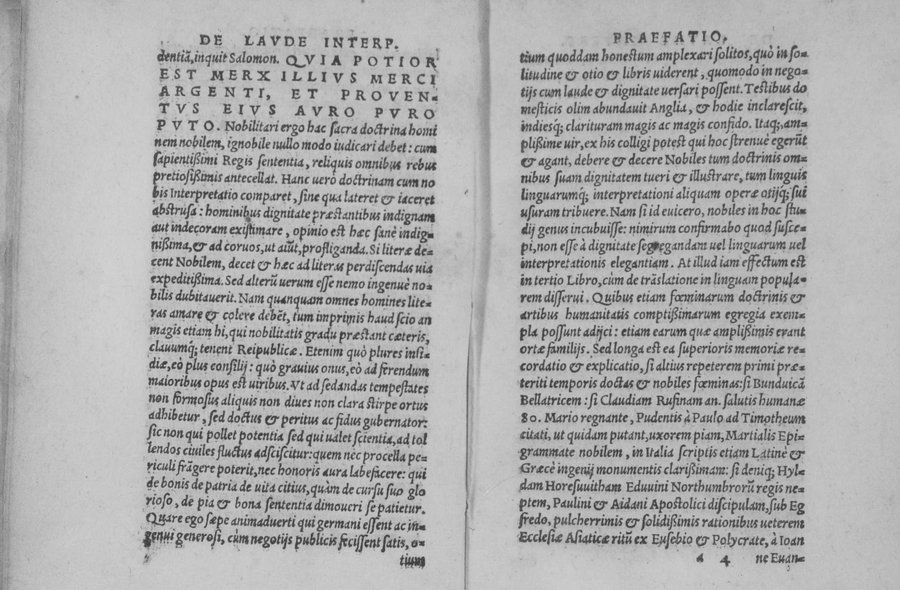 DE LAVDE INTERP.
dentiã, inquit Salomon. QVIA POTIOR
EST MERX ILLIVS MERCI
ARGENTI, ET PROVEN-
TVS EIVS AVRO PVRO
PVTO. Nobilitari ergo hac sacra doctrina homi
nem nobilem, ignobile nullo modo iudicari debet: cum
sapientißimi Regis sententia, reliquis omnibus rebus
pretiosißimis antecellat. Hanc uerò doctrinam cum no
bis Interpretatio comparet, sine qua lateret & iaceret
abstrusa: hominibus dignitate præstantibus indignam
aut indecoram existimare, opinio est hæc sanè indig-
nißima, & ad coruos, ut aiũt, profliganda. Si literæ de-
cent Nobilem, decet & hæc ad literas perdiscendas uia
expeditißima. Sed alterũ uerum esse nemo ingenuè no-
bilis dubitauerit. Nam quanquam omnes homines lite-
ras amare & colere debẽt, tum imprimis haud scio an
magis etiam hi, qui nobilitatis gradu præstant cæteris,
clauumq; tenent Reipublicæ. Etenim quò plures insi-
diæ, eò plus consilij: quò grauius onus, eò ad ferendum
maioribus opus est uiribus. Vt ad sedandas tempestates
non formosus aliquis non diues non clara stirpe ortus
adhibetur, sed doctus & peritus ac fidus gubernator:
sic non qui pollet potentia sed qui ualet scientia, ad tol
lendos ciuiles fluctus adsciscitur: quem nec procella pe-
riculi frãgere poterit, nec honoris aura labefacere: qui
de bonis de patria de uita citius, quàm de cursu suo glo
rioso, de pia & bona sententia dimoueri se patietur.
Quare ego sæpe animaduerti qui germani essent ac in-
genui generosi, cùm negotijs publicis fecissent satis, o-
tium
PRAEFATIO.
tium quoddam honestum amplexari solitos, quò in so-
litudine & otio & libris uiderent, quomodo in nego-
tijs cum laude & dignitate uersari possent. Testibus do
mesticis olim abundauit Anglia, & hodie inclarescit,
indiesq; clarituram magis ac magis confido. Itaq;, am-
plißime uir, ex his colligi potest qui hoc strenuè egerũt
& agant, debere & decere Nobiles tum doctrinis om-
nibus suam dignitatem tueri & illustrare, tum linguis
linguarumq; interpretationi aliquam operæ otijq; sui
usuram tribuere. Nam si id euicero, nobiles in hoc stu-
dij genus incubuisse: nimirum confirmabo quod susce-
pi, non esse à dignitate segregandam uel linguarum uel
interpretationis elegantiam. At illud iam effectum est
in tertio Libro, cùm de trãslatione in linguam popula-
rem disserui. Quibus etiam fœminarum doctrinis &
artibus humanitatis comptißimarum egregia exem-
pla possunt adijci: etiam earum quæ amplißimis erant
ortæ familijs. Sed longa est ea superioris memoriæ re-
cordatio & explicatio, si altius repeterem primi præ-
teriti temporis doctas & nobiles fœminas: si Bunduicã
Bellatricem: si Claudiam Rufinam an. salutis humanæ
80. Mario regnante, Pudentis à Paulo ad Timotheum
citati, ut quidam putant, uxorem piam, Martialis Epi-
grammate nobilem, in Italia scriptis etiam Latinè &
Græcè ingenij monumentis clarißimam: si deniq; Hyl-
dam Horesuuitham Eduuini Northumbrorũ regis ne-
ptem, Paulini & Aidani Apostolici discipulam, sub Eg
fredo, pulcherrimis & solidißimis rationibus ueterem
Ecclesiæ Asiaticæ ritũ ex Eusebio & Polycrate, à Ioan
A 4 ne Euan-